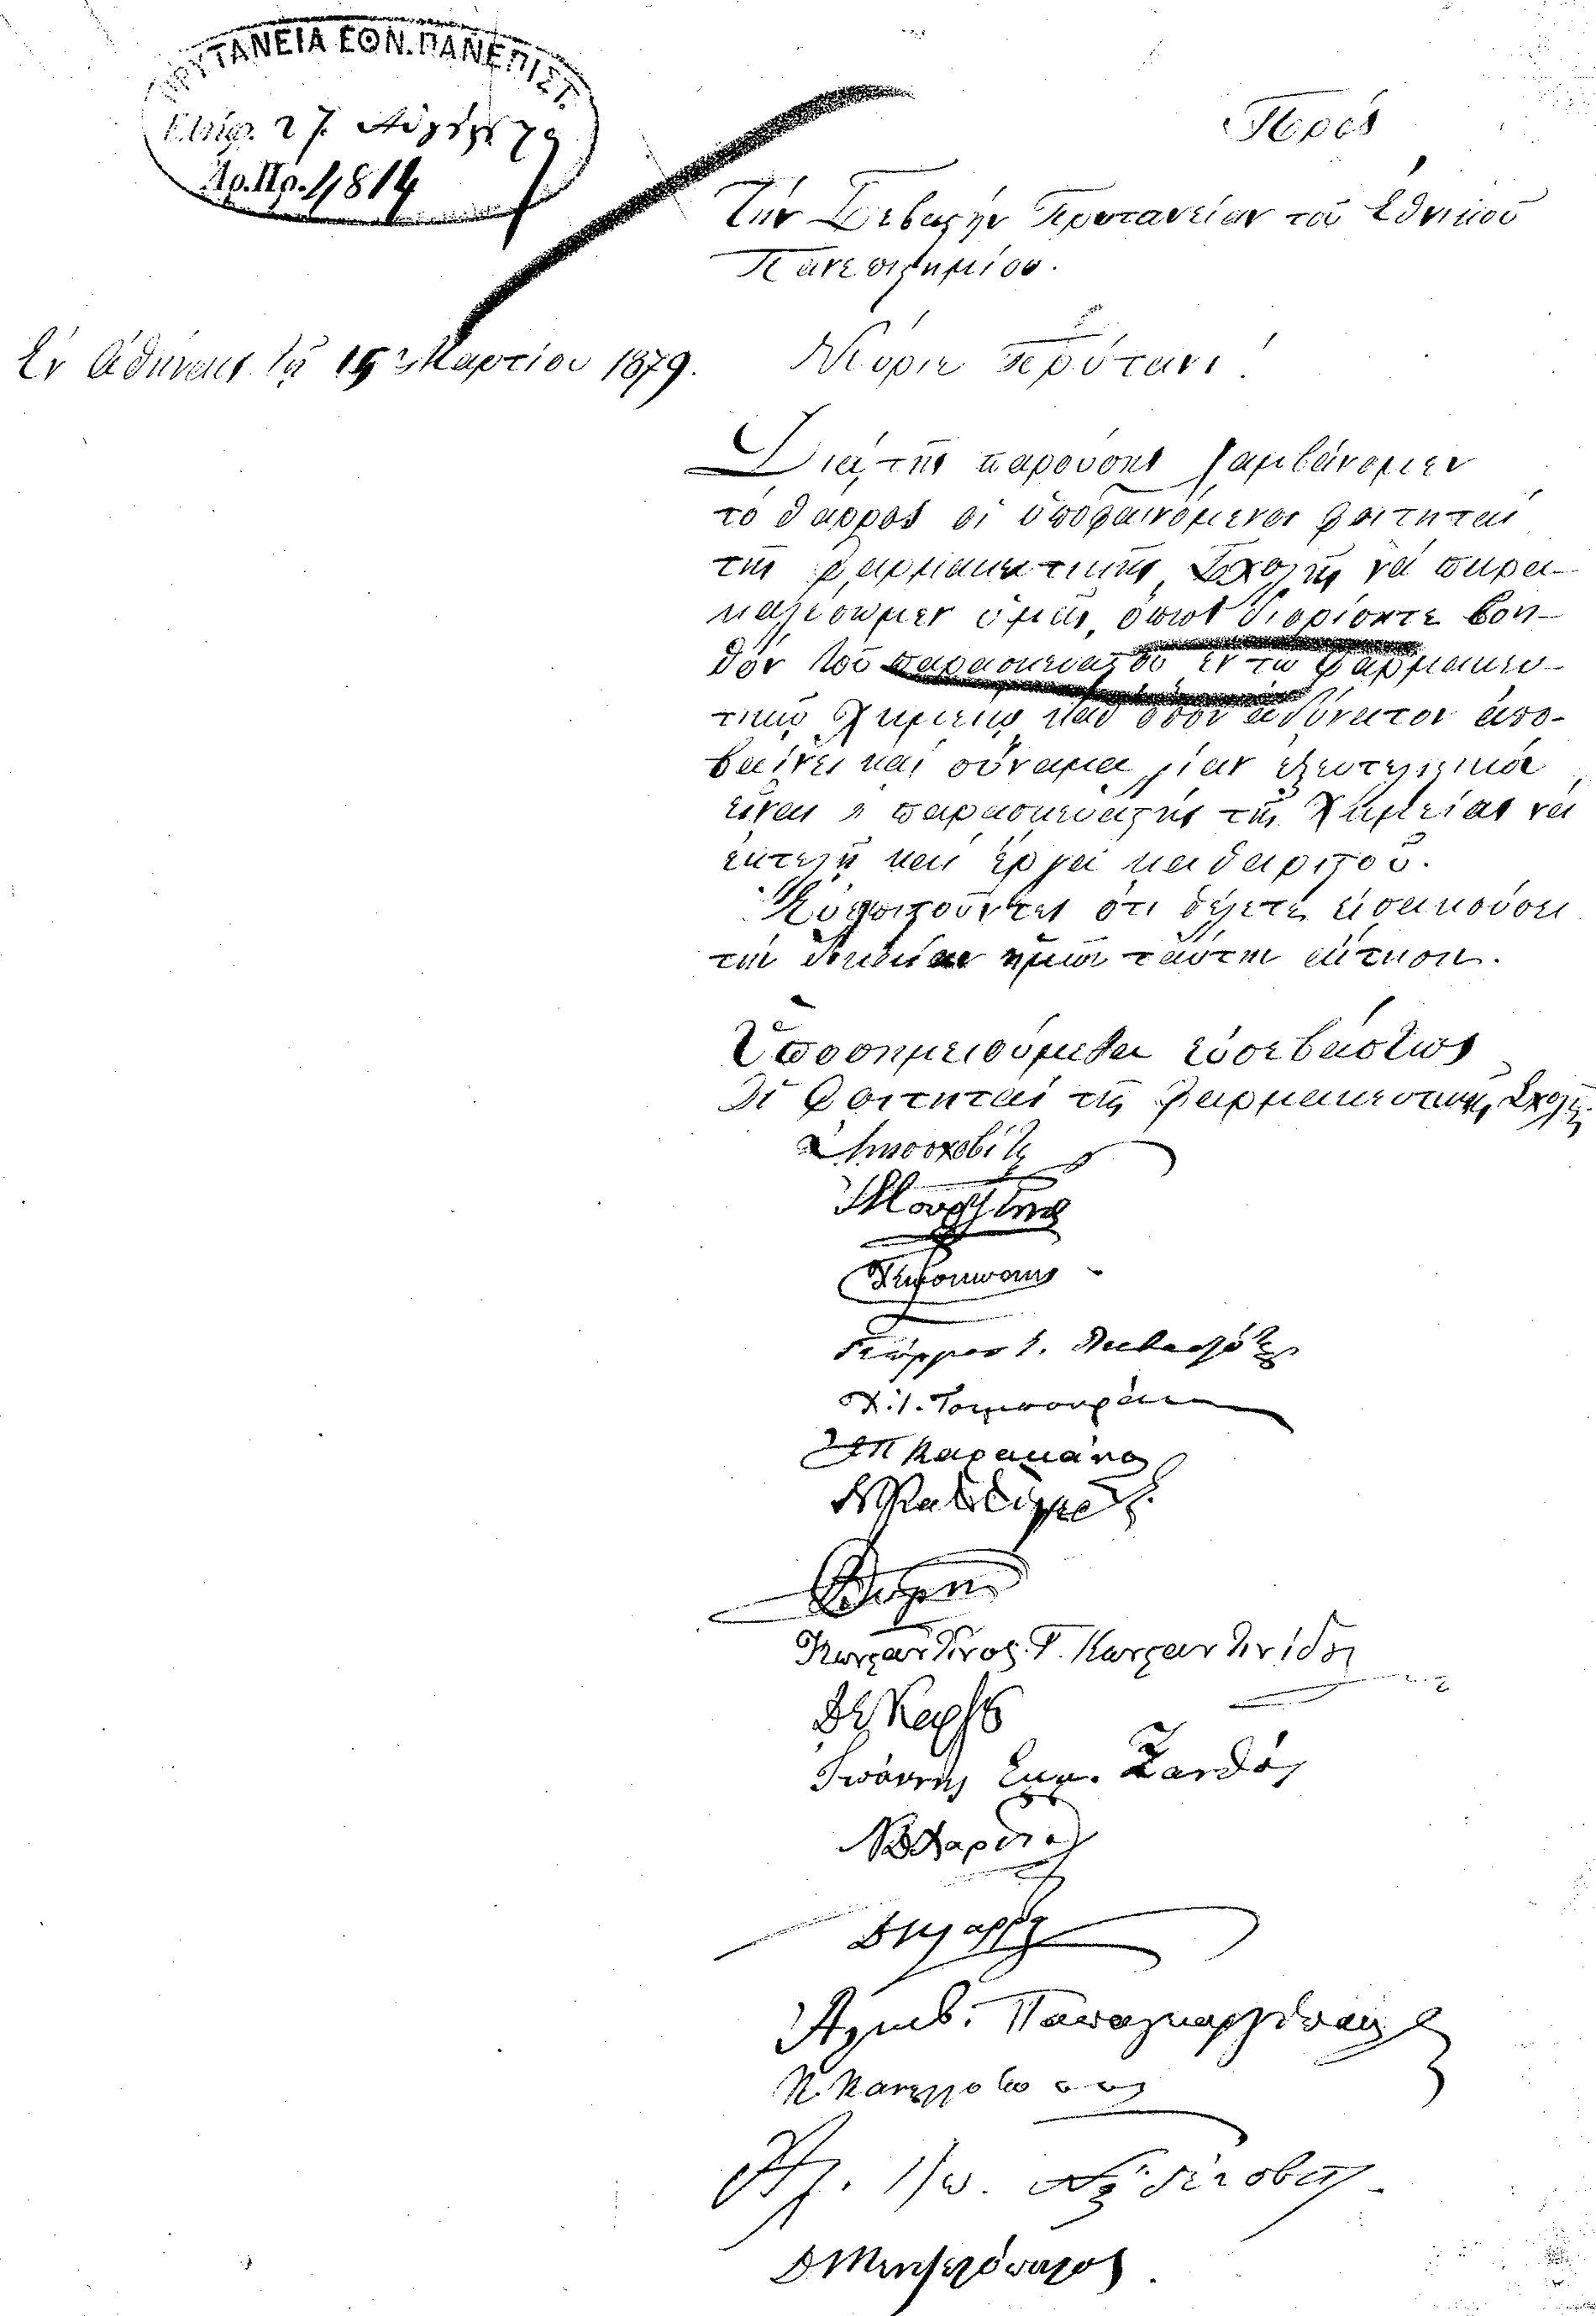 ΠΡΥΤΑΝΕΙΑ ΕΘΝ. ΠΑΝΕΠΙΣΤ.
27
Αρ. Πρ. 4814
Πρός
Τήν Σεβαστήν Πρυτανείαν τοῦ Ἐθνικοῦ
Πανεπιστημίου.
Ἐν Ἀθήναις τῇ 15 Μαρτίου 1879.
Κύριε Πρύτανι!
Διά τῆς παρούσης λαμβάνομεν
τό θάρρος οἱ ὑποφαινόμενοι φοιτηταί
τῆς φαρμακευτικῆς Σχολῆς νά παρα-
καλέσωμεν ὑμᾶς, ὅπως διορίσητε βοη-
θόν τοῦ παρασκευαστοῦ ἐν τῷ φαρμακευ-
τικῷ Χημείῳ καθ' ὅσον ἀδύνατον ἀπο-
βαίνει καί σύναμα λίαν ἐξευτελιστικόν
εἶναι ὁ παρασκευαστής τῆς Χημείας νά
ἐκτελῇ καί ἔργα καθαριστοῦ.
Εὐελπιστοῦντες ὅτι θέλετε εἰσακούσει
τήν δικαίαν ἡμῶν ταύτην αἴτησιν.
Ὑποσημειούμεθα εὐσεβάστως
Οἱ Φοιτηταί τῆς Φαρμακευτικῆς Σχολῆς
Γεώργιος
Χ. Ι.
Π Καρακάνας
Κωνσταντῖνος Γ. Κωνσταντινίδης
Ἰωάννης Ξανθός
Ἀλκιβ.
Κ. Κανελλόπουλος